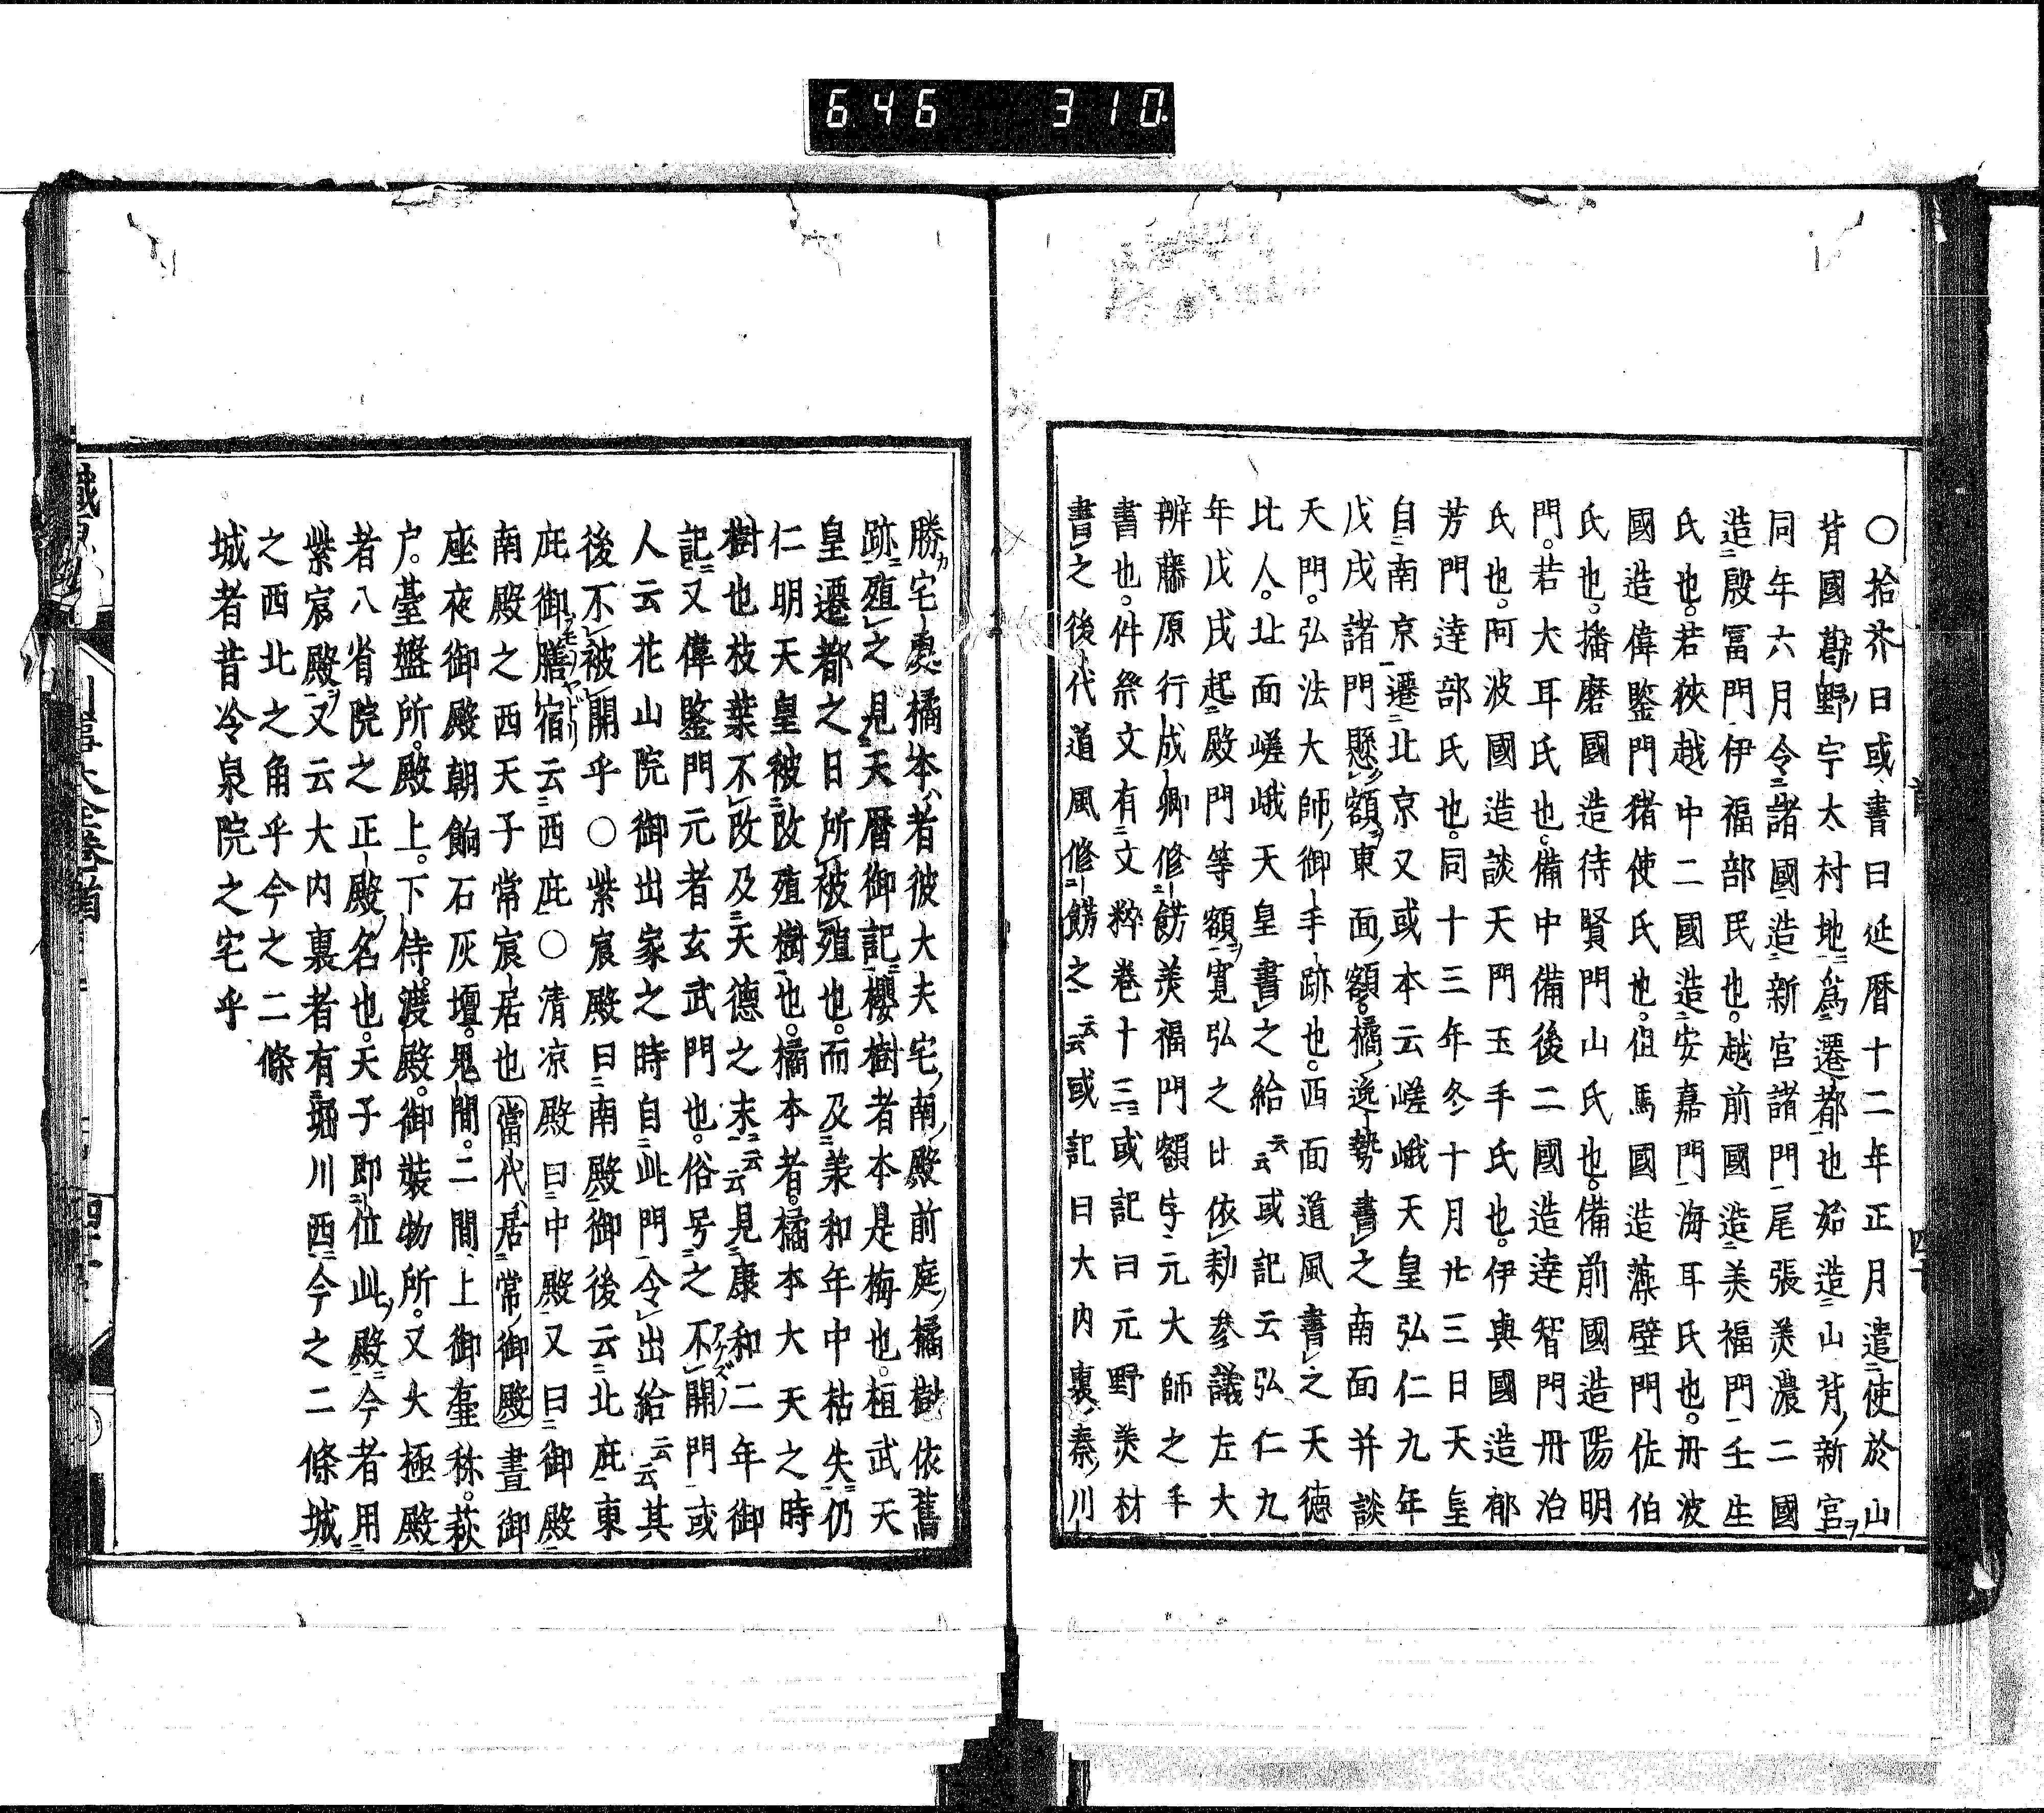 646 310
〇拾芥曰或書曰延暦十二年正月遣使於山
背國葛野宇太村地爲遷都也始造山背新宮
同年六月令諸國造新宮諸門尾張美濃二國
造殷冨門伊福部民也越前國造美福門壬生
氏也若狹越中二國造安嘉門海耳氏也丹波
國造偉鑒門猪使氏也伹馬國造藻壁門佐伯
氏也播磨國造待賢門山氏也備前國造陽明
門若犬耳氏也備中備後二國造達智門丹治
氏也阿波國造談天門玉手氏也伊與國造郁
芳門達部氏也同十三年冬十月廿三日天皇
自南京遷北京又或本云嵯峨天皇弘仁九年
戊戌諸門懸額東面額橘逸勢書之南面并談
天門弘法大師御手跡也西面道風書之天德
比人北面嵯峨天皇書之給云云或記云弘仁九
年戊戌起殿門等額寬弘之比依勅參議左大
辨藤原行成卿修餝美福門額字元大師之手
書也件祭文有文粹巻十三或記曰元野美材
書之後代道風修餝之云云或記曰大内裏秦川
勝宅橘本者彼大夫宅南殿前庭橘樹依舊
跡殖之見天暦御記櫻樹者本是梅也桓武天
皇遷都之日所被殖也而及美和年中枯失仍
仁明天皇被改殖樹也橘本者橘本大天之時
樹也枝葉不改及天德之末云云見康和二年御
記又偉鑒門元者玄武門也俗号之不開門或
人云花山院御出家之時自此門令出給云云其
後不被開乎〇紫宸殿曰南殿御後云北庇東
庇御膳宿云西庇〇清凉殿曰中殿又曰御殿
南殿之西天子常宸居也當代居常御殿晝御
座夜御殿朝餉石灰壇鬼間二間上御臺秣萩
戸臺盤所殿上下侍渡殿御裝物所又大極殿
者八省院之正殿名也天子即位此殿今者用
紫宸殿又云大内裏者有堀川西今之二條城
之西北之角乎今之二條
城者昔冷泉院之宅乎